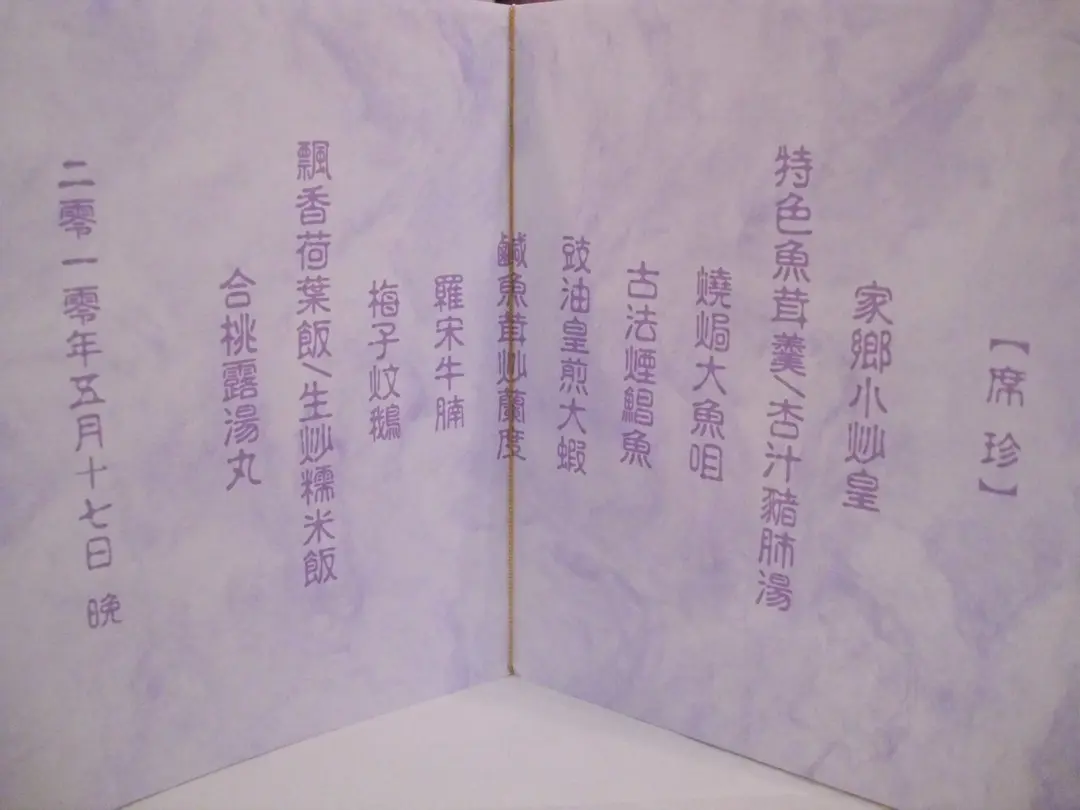 【席珍】
家鄉小炒皇
特色魚茸羹/杏汁豬肺湯
燒焗大魚咀
古法煙鯧魚
豉油皇煎大蝦
鹹魚茸炒蘭度
羅宋牛腩
梅子炆鵝
飄香荷葉飯/生炒糯米飯
合桃露湯丸
二零一零年五月十七日 晚